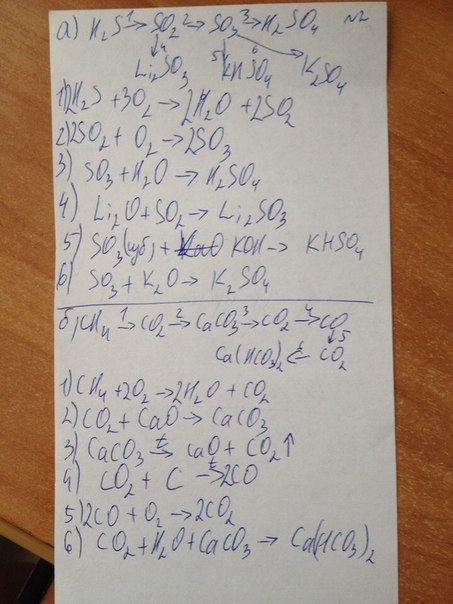 а) H₂S ¹→ SO₂ ²→ SO₃ ³→ H₂SO₄ №2
↓4 5↓ 6
Li₂SO₃ KHSO₄ K₂SO₄
1) 2H₂S + 3O₂ → 2H₂O + 2SO₂
2) 2SO₂ + O₂ → 2SO₃
3) SO₃ + H₂O → H₂SO₄
4) Li₂O + SO₂ → Li₂SO₃
5) SO₃ (изб) + KOH → KHSO₄
6) SO₃ + K₂O → K₂SO₄
б) CH₄ ¹→ CO₂ ²→ CaCO₃ ³→ CO₂ ⁴→ CO
↓5
Ca(HCO₃)₂ ⁶← CO₂
1) CH₄ + 2O₂ → 2H₂O + CO₂
2) CO₂ + CaO → CaCO₃
3) CaCO₃ t→ CaO + CO₂ ↑
4) CO₂ + C t→ 2CO
5) 2CO + O₂ → 2CO₂
6) CO₂ + H₂O + CaCO₃ → Ca(HCO₃)₂